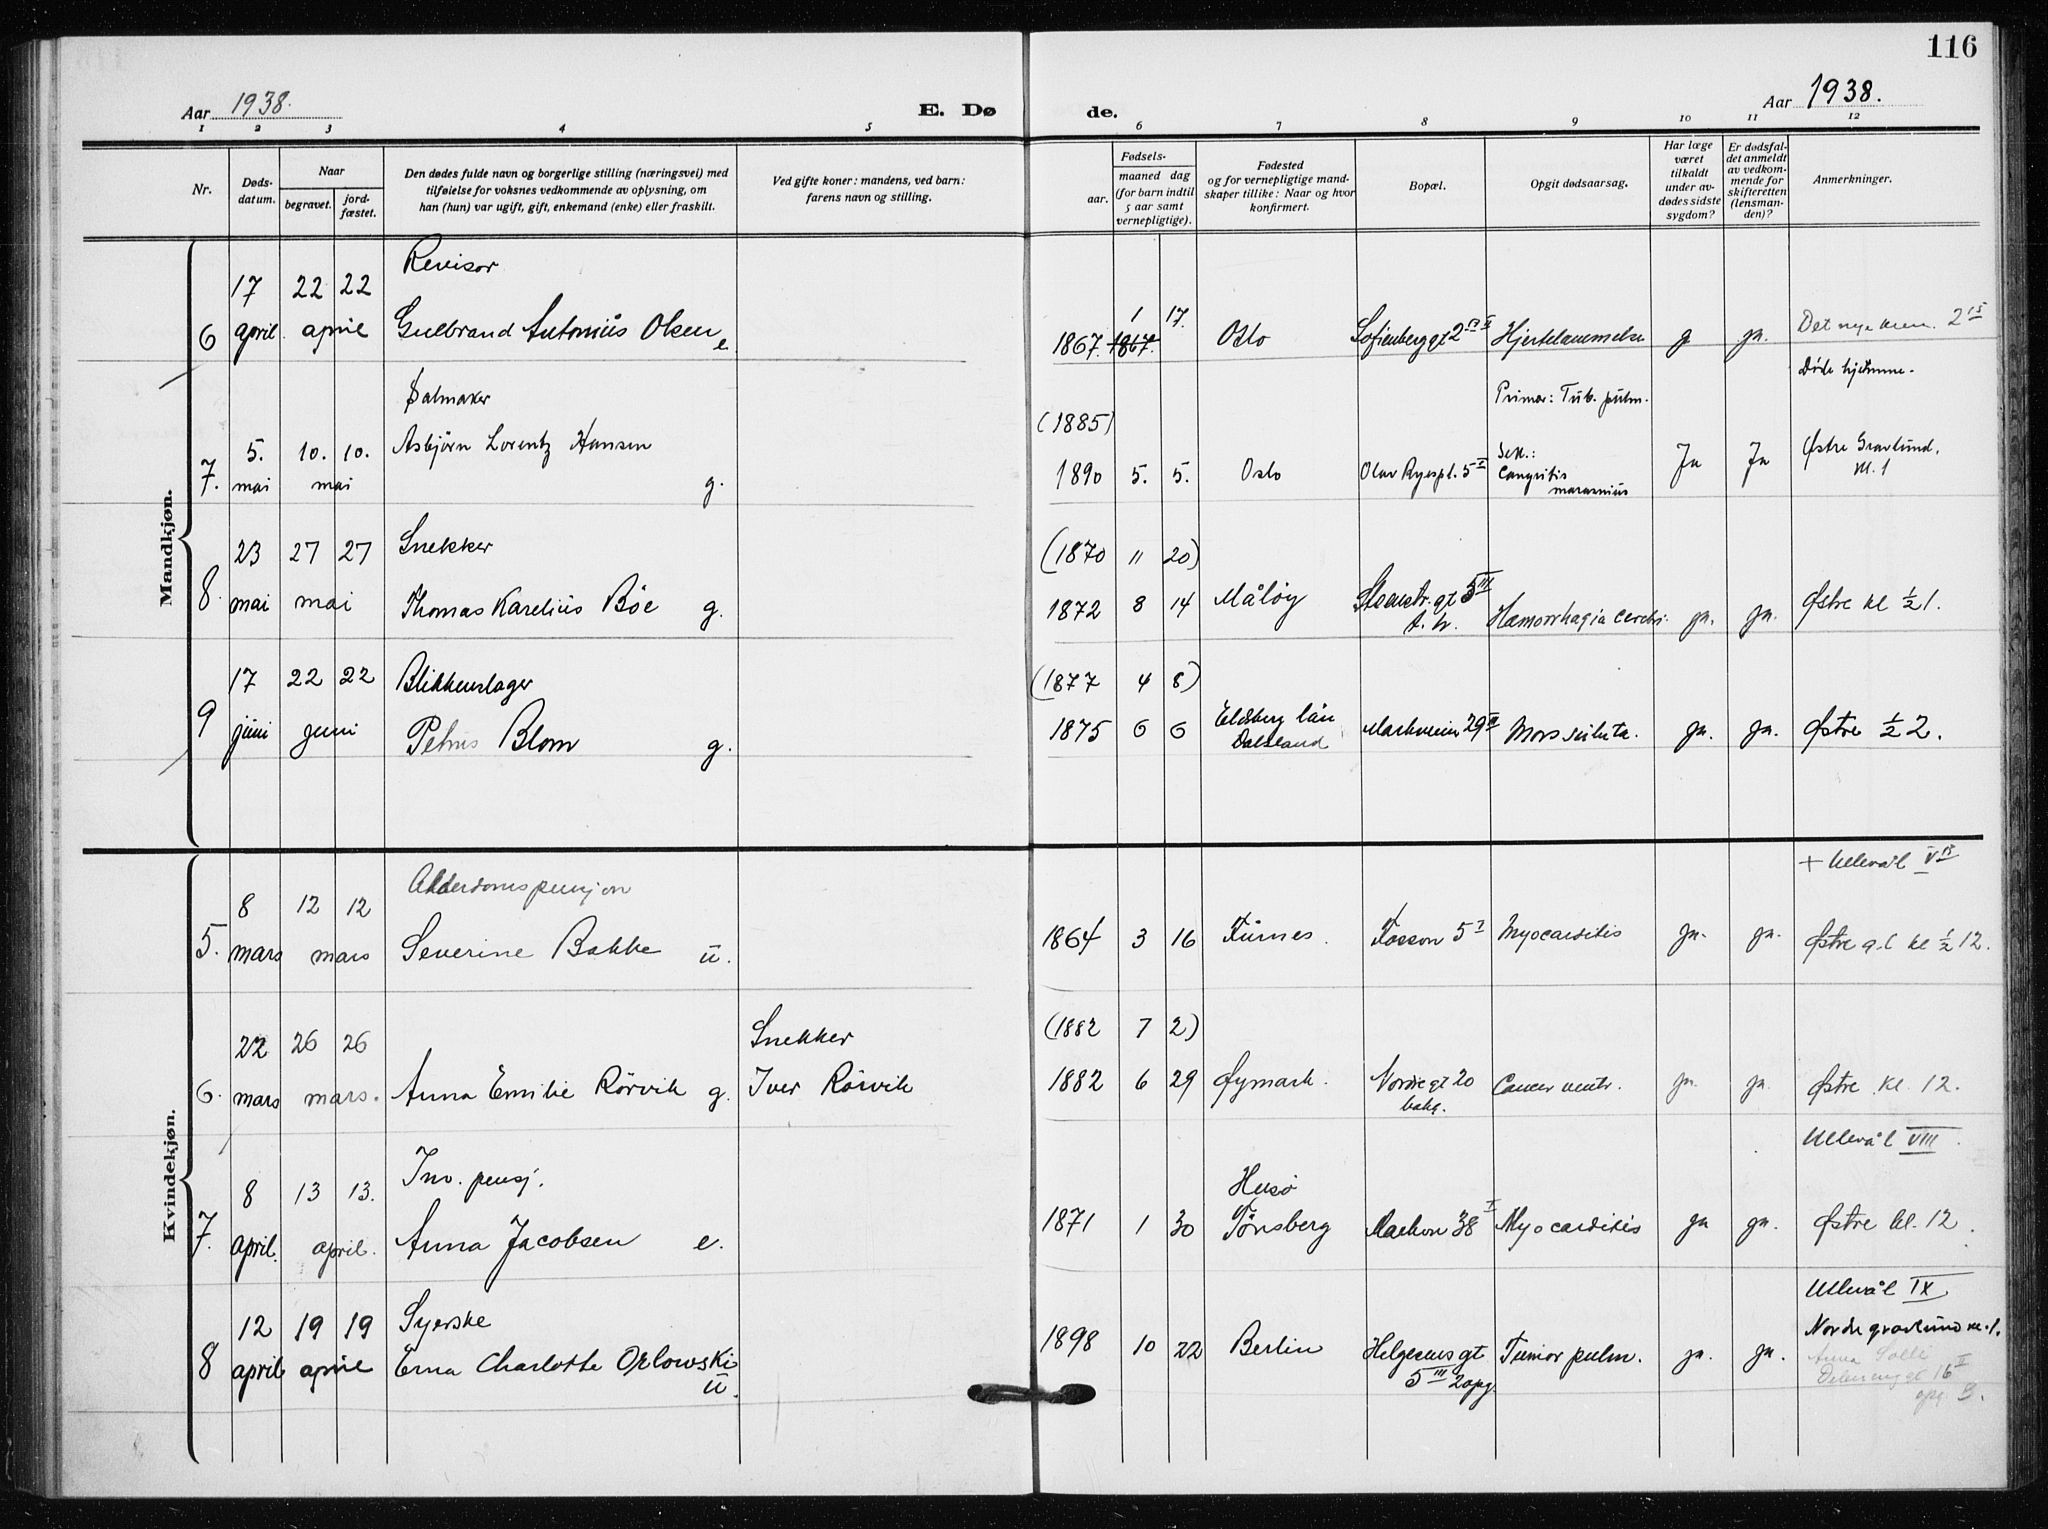 116
Aar 1938.
E. Dø
de.
Aar 1938.
1 2 3 4 5 6 7 8 9 10 11 12
Nr.
Døds-
datum.
Naar
begravet.
jord-
fæstet.
Den dødes fulde navn og borgerlige stilling (næringsvei) med
tilføielse for voksnes vedkommende av oplysning, om
han (hun) var ugift, gift, enkemand (enke) eller fraskilt.
Ved gifte koner: mandens, ved barn:
farens navn og stilling.
Fødsels-
aar.
maaned dag
(for barn indtil
5 aar samt
vernepligtige).
Fødested
og for vernepligtige mand-
skaper tillike: Naar og hvor
konfirmert.
Bopæl.
Opgit dødsaarsag.
Har læge
været
tilkaldt
under av-
dødes sidste
sygdom?
Er dødsfal-
det anmeldt
av vedkom-
mende for
skifteretten
(lensman-
den)?
Anmerkninger.
Mandkjøn.
Revisor
17 22 22
1 17.
6 april april Gulbrand Antonius Olsen e
1867. 1867. Oslo Sofienberggt 2 Hjertelammelse g ja. Det nye krem. 2 15
Døde hjemme.
Salmaker
(1885)
Primær: Tub. pulm.
5. 10. 10. Asbjörn Lorentz Hansen
7. mai mai g.
1890 5. 5. Oslo Olav Ryespl. 5 I
Sek.:
marasmus
Ja Ja Østre Gravlund.
kl. 1
23 27 27 Snekker
(1870 11 20)
8. mai mai Thomas Karelius Böe g.
1872 8 14 Måløy Steenstr.gt 5 III
t. h.
Hæmorrhagia cerebri. ja. ja. Østre kl ½ 1.
17 22 22 Blikkenslager
(1877 4 8)
9 juni juni Petrus Blom g.
1875 6 6
län
Dalsland
29 III Mors subita. ja. ja. Østre ½ 2.
Kvindekjøn.
Alderdomspensjon
+ Ullevål
8 12 12
5. mars mars Severine Bakke u.
1864 3 16 Furnes. Fossvn 5 I Myocarditis ja. ja. Østre g.l kl ½ 12.
22 26 26
Snekker
(1882 7 2)
6. mars mars. Anna Emilie Rörvik g. Iver Rörvik
1882 6 29 Øymark. Nordregt 20
bakg.
Cancer ventr. ja. ja. Østre kl. 12.
Ullevål VIII.
8 13 13. Inv. pensj.
Husö
7. april. april. Anna Jacobsen e.
1871 1 30 Tönsberg 38 I Myocarditis ja ja. Østre kl. 12.
Ullevål IX
12 19 19 Syerske
8 april april Erna Charlotte Orlowski
u.
1898 10 22 Berlin Helgesens gt
5 III 2 opg.
Tumor pulm. ja. ja. Nordre gravlund kl. 1.
Anna Solli
16 II
opg. B.